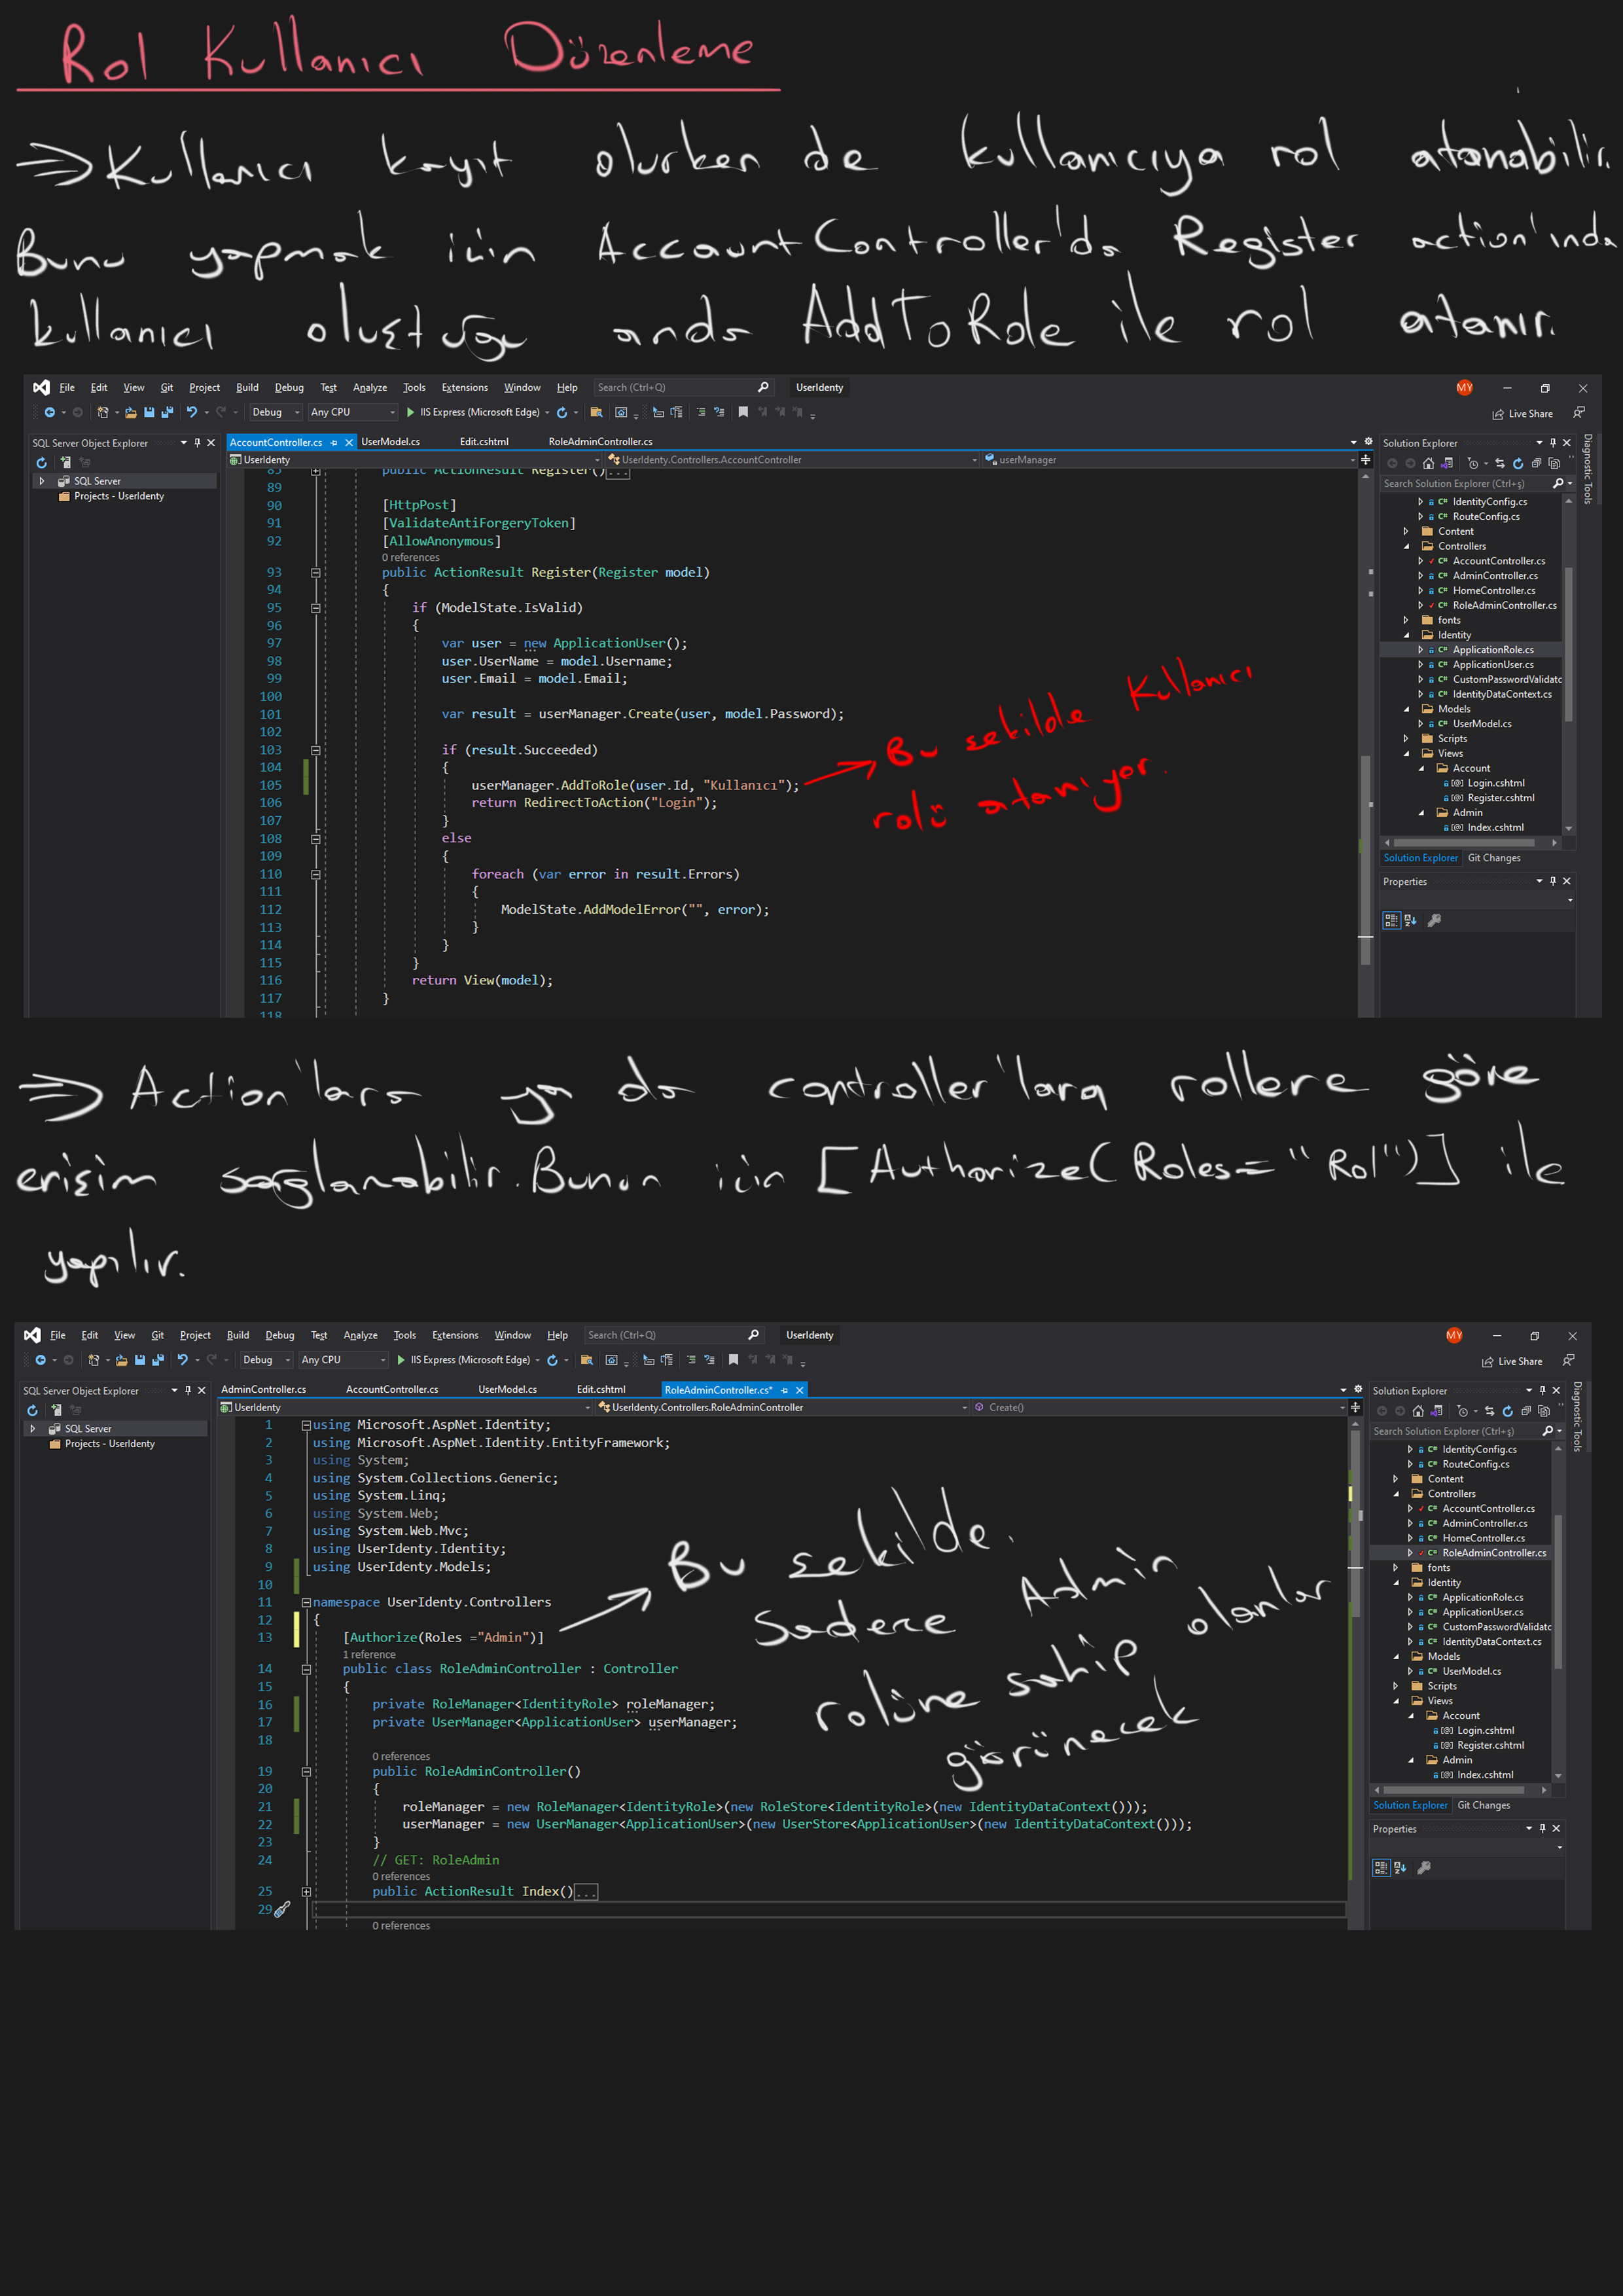 Rol Kullanıcı Düzenleme
⇒ Kullanıcı kayıt olurken de kullanıcıya rol atanabilir.
Bunu yapmak için AccountController'da Register action'ında
kullanıcı oluştuğu anda AddToRole ile rol atanır.
File Edit View Git Project Build Debug Test Analyze Tools Extensions Window Help Search (Ctrl+Q) UserIdenty MY
Debug Any CPU IIS Express (Microsoft Edge) Live Share
SQL Server Object Explorer
SQL Server
Projects - UserIdenty
AccountController.cs UserModel.cs Edit.cshtml RoleAdminController.cs
UserIdenty UserIdenty.Controllers.AccountController userManager
85 public ActionResult Register()...
89
90 [HttpPost]
91 [ValidateAntiForgeryToken]
92 [AllowAnonymous]
0 references
93 public ActionResult Register(Register model)
94 {
95 if (ModelState.IsValid)
96 {
97 var user = new ApplicationUser();
98 user.UserName = model.Username;
99 user.Email = model.Email;
100
101 var result = userManager.Create(user, model.Password);
102
103 if (result.Succeeded)
104 {
105 userManager.AddToRole(user.Id, "Kullanıcı");
106 return RedirectToAction("Login");
107 }
108 else
109 {
110 foreach (var error in result.Errors)
111 {
112 ModelState.AddModelError("", error);
113 }
114 }
115 }
116 return View(model);
117 }
118
→ Bu sekilde Kullanıcı
rolü atanıyor.
Solution Explorer
Search Solution Explorer (Ctrl+ş)
IdentityConfig.cs
RouteConfig.cs
Content
Controllers
AccountController.cs
AdminController.cs
HomeController.cs
RoleAdminController.cs
fonts
Identity
ApplicationRole.cs
ApplicationUser.cs
CustomPasswordValidatc
IdentityDataContext.cs
Models
UserModel.cs
Scripts
Views
Account
Login.cshtml
Register.cshtml
Admin
Index.cshtml
Solution Explorer Git Changes
Properties
Diagnostic Tools
⇒ Action'lara ya da controller'lara rollere göre
erişim sağlanabilir. Bunun için [Authorize(Roles="Rol")] ile
yapılır.
File Edit View Git Project Build Debug Test Analyze Tools Extensions Window Help Search (Ctrl+Q) UserIdenty MY
Debug Any CPU IIS Express (Microsoft Edge) Live Share
SQL Server Object Explorer
SQL Server
Projects - UserIdenty
AdminController.cs AccountController.cs UserModel.cs Edit.cshtml RoleAdminController.cs*
UserIdenty UserIdenty.Controllers.RoleAdminController Create()
1 using Microsoft.AspNet.Identity;
2 using Microsoft.AspNet.Identity.EntityFramework;
3 using System;
4 using System.Collections.Generic;
5 using System.Linq;
6 using System.Web;
7 using System.Web.Mvc;
8 using UserIdenty.Identity;
9 using UserIdenty.Models;
10
11 namespace UserIdenty.Controllers
12 {
13 [Authorize(Roles ="Admin")]
1 reference
14 public class RoleAdminController : Controller
15 {
16 private RoleManager<IdentityRole> roleManager;
17 private UserManager<ApplicationUser> userManager;
18
0 references
19 public RoleAdminController()
20 {
21 roleManager = new RoleManager<IdentityRole>(new RoleStore<IdentityRole>(new IdentityDataContext()));
22 userManager = new UserManager<ApplicationUser>(new UserStore<ApplicationUser>(new IdentityDataContext()));
23 }
24 // GET: RoleAdmin
0 references
25 public ActionResult Index()...
29
0 references
→ Bu sekilde.
Sadece Admin
rolüne sahip olanlar
görünecek
Solution Explorer
Search Solution Explorer (Ctrl+ş)
IdentityConfig.cs
RouteConfig.cs
Content
Controllers
AccountController.cs
AdminController.cs
HomeController.cs
RoleAdminController.cs
fonts
Identity
ApplicationRole.cs
ApplicationUser.cs
CustomPasswordValidatc
IdentityDataContext.cs
Models
UserModel.cs
Scripts
Views
Account
Login.cshtml
Register.cshtml
Admin
Index.cshtml
Solution Explorer Git Changes
Properties
Diagnostic Tools